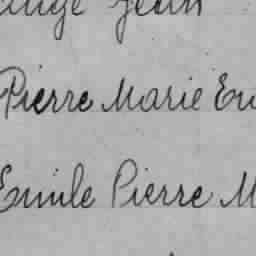 Jean
Pierre Marie
Emile Pierre M